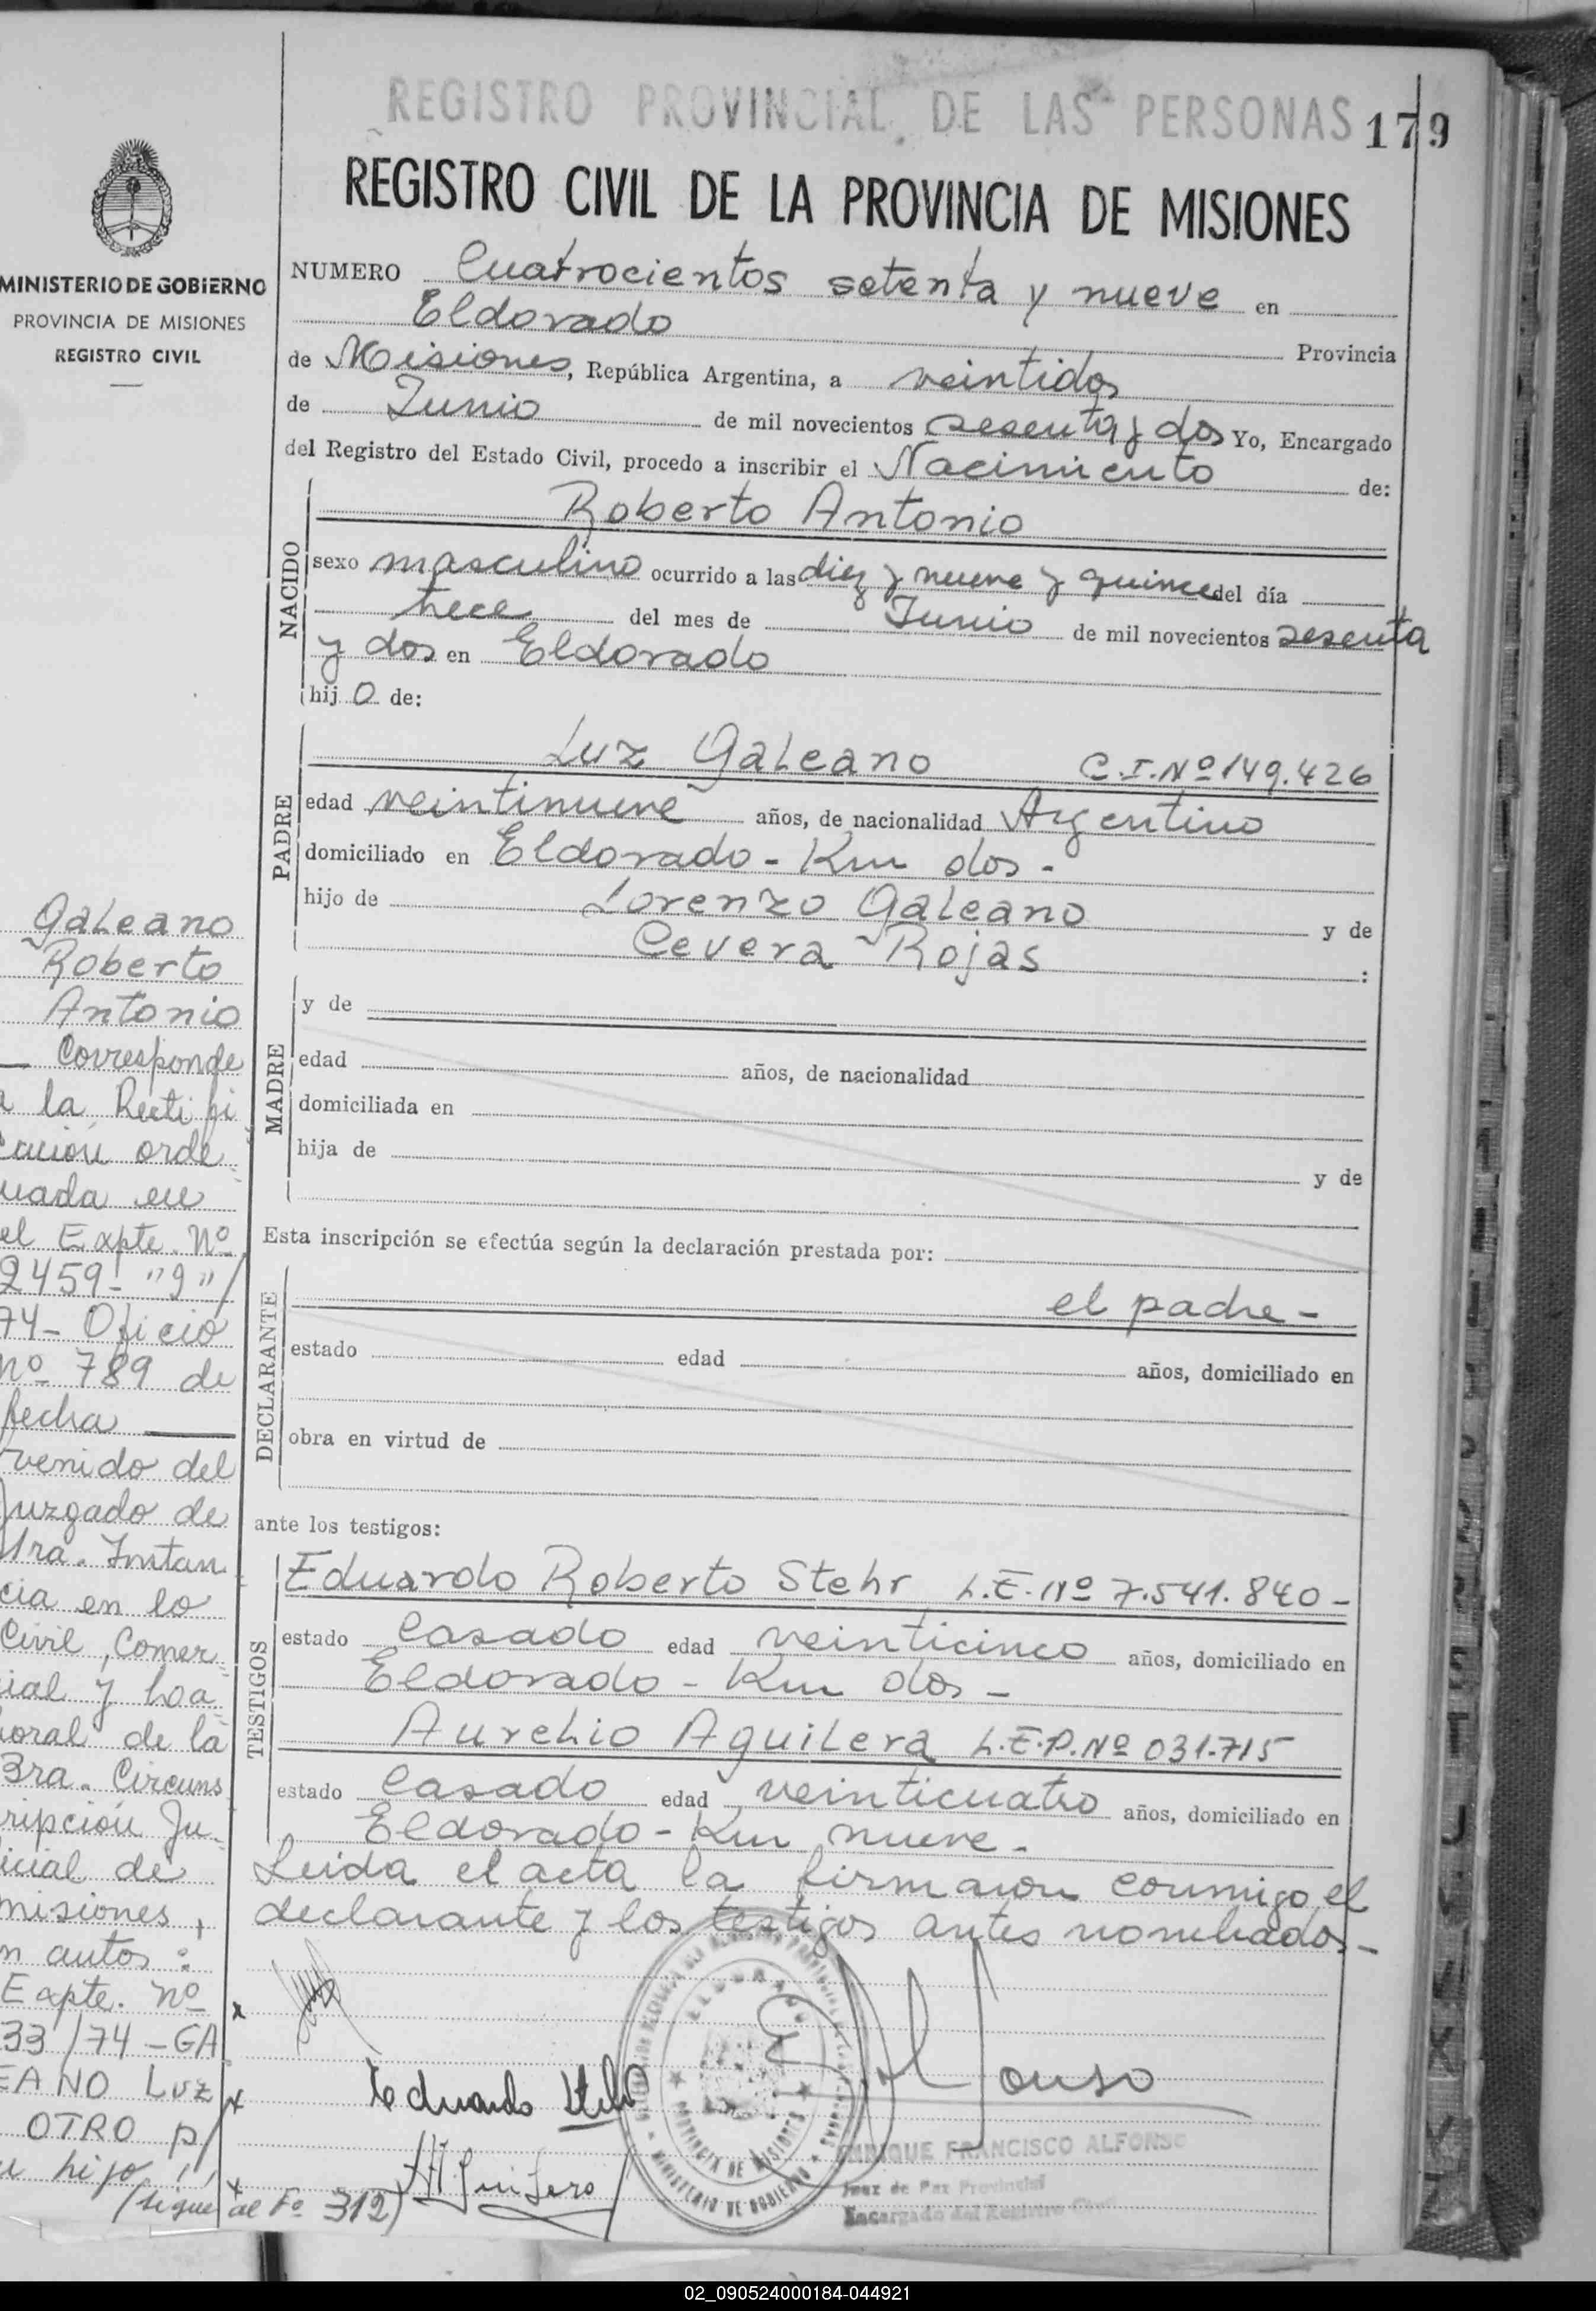 REGISTRO PROVINCIAL DE LAS PERSONAS 179
REGISTRO CIVIL DE LA PROVINCIA DE MISIONES
MINISTERIO DE GOBIERNO
PROVINCIA DE MISIONES
REGISTRO CIVIL
NUMERO Cuatrocientos setenta y nueve en
Eldorado Provincia
de Misiones, República Argentina, a veintidos
de Junio de mil novecientos sesenta y dos Yo, Encargado
del Registro del Estado Civil, procedo a inscribir el Nacimiento de:
NACIDO
Roberto Antonio
sexo masculino ocurrido a las diez y nueve y quince del día
trece del mes de Junio de mil novecientos sesenta
y dos en Eldorado
hij o de:
PADRE
Luz Galeano C.I.Nº 149.426
edad veintinueve años, de nacionalidad Argentino
domiciliado en Eldorado - Km dos -
hijo de Lorenzo Galeano y de
Cevera Rojas :
MADRE
y de
edad años, de nacionalidad
domiciliada en
hija de y de
Esta inscripción se efectúa según la declaración prestada por:
DECLARANTE
el padre -
estado edad años, domiciliado en
obra en virtud de
ante los testigos:
TESTIGOS
Eduardo Roberto Stehr L.E. Nº 7.541.840 -
estado Casado edad veinticinco años, domiciliado en
Eldorado - Km dos -
Aurelio Aguilera L.E.P. Nº 031.715
estado Casado edad veinticuatro años, domiciliado en
Eldorado - Km nueve -
Leida el acta la firmaron conmigo el
declarante y los testigos antes nombrados -
Galeano
Roberto
Antonio
Corresponde
a la Rectifi
cación orde
nada en
el Expte. Nº
2459- "g"/
74- Oficio
nº 789 de
fecha
venido del
Juzgado de
1ra. Instan
cia en lo
Civil, Comer
cial y La
boral de la
3ra. Circuns
ripción Ju
icial de
misiones,
n autos:
Expte. nº
33/74 - GA
EANO Luz
OTRO p/
u hijo "
(sigue al Fº 312)
Eduardo Stehr
Alfonso
ELDORADO
PROVINCIA DE MISIONES
MINISTERIO DE GOBIERNO
ENRIQUE FRANCISCO ALFONSO
Juez de Paz Provincial
Encargado del Registro Civil
02_090524000184-044921